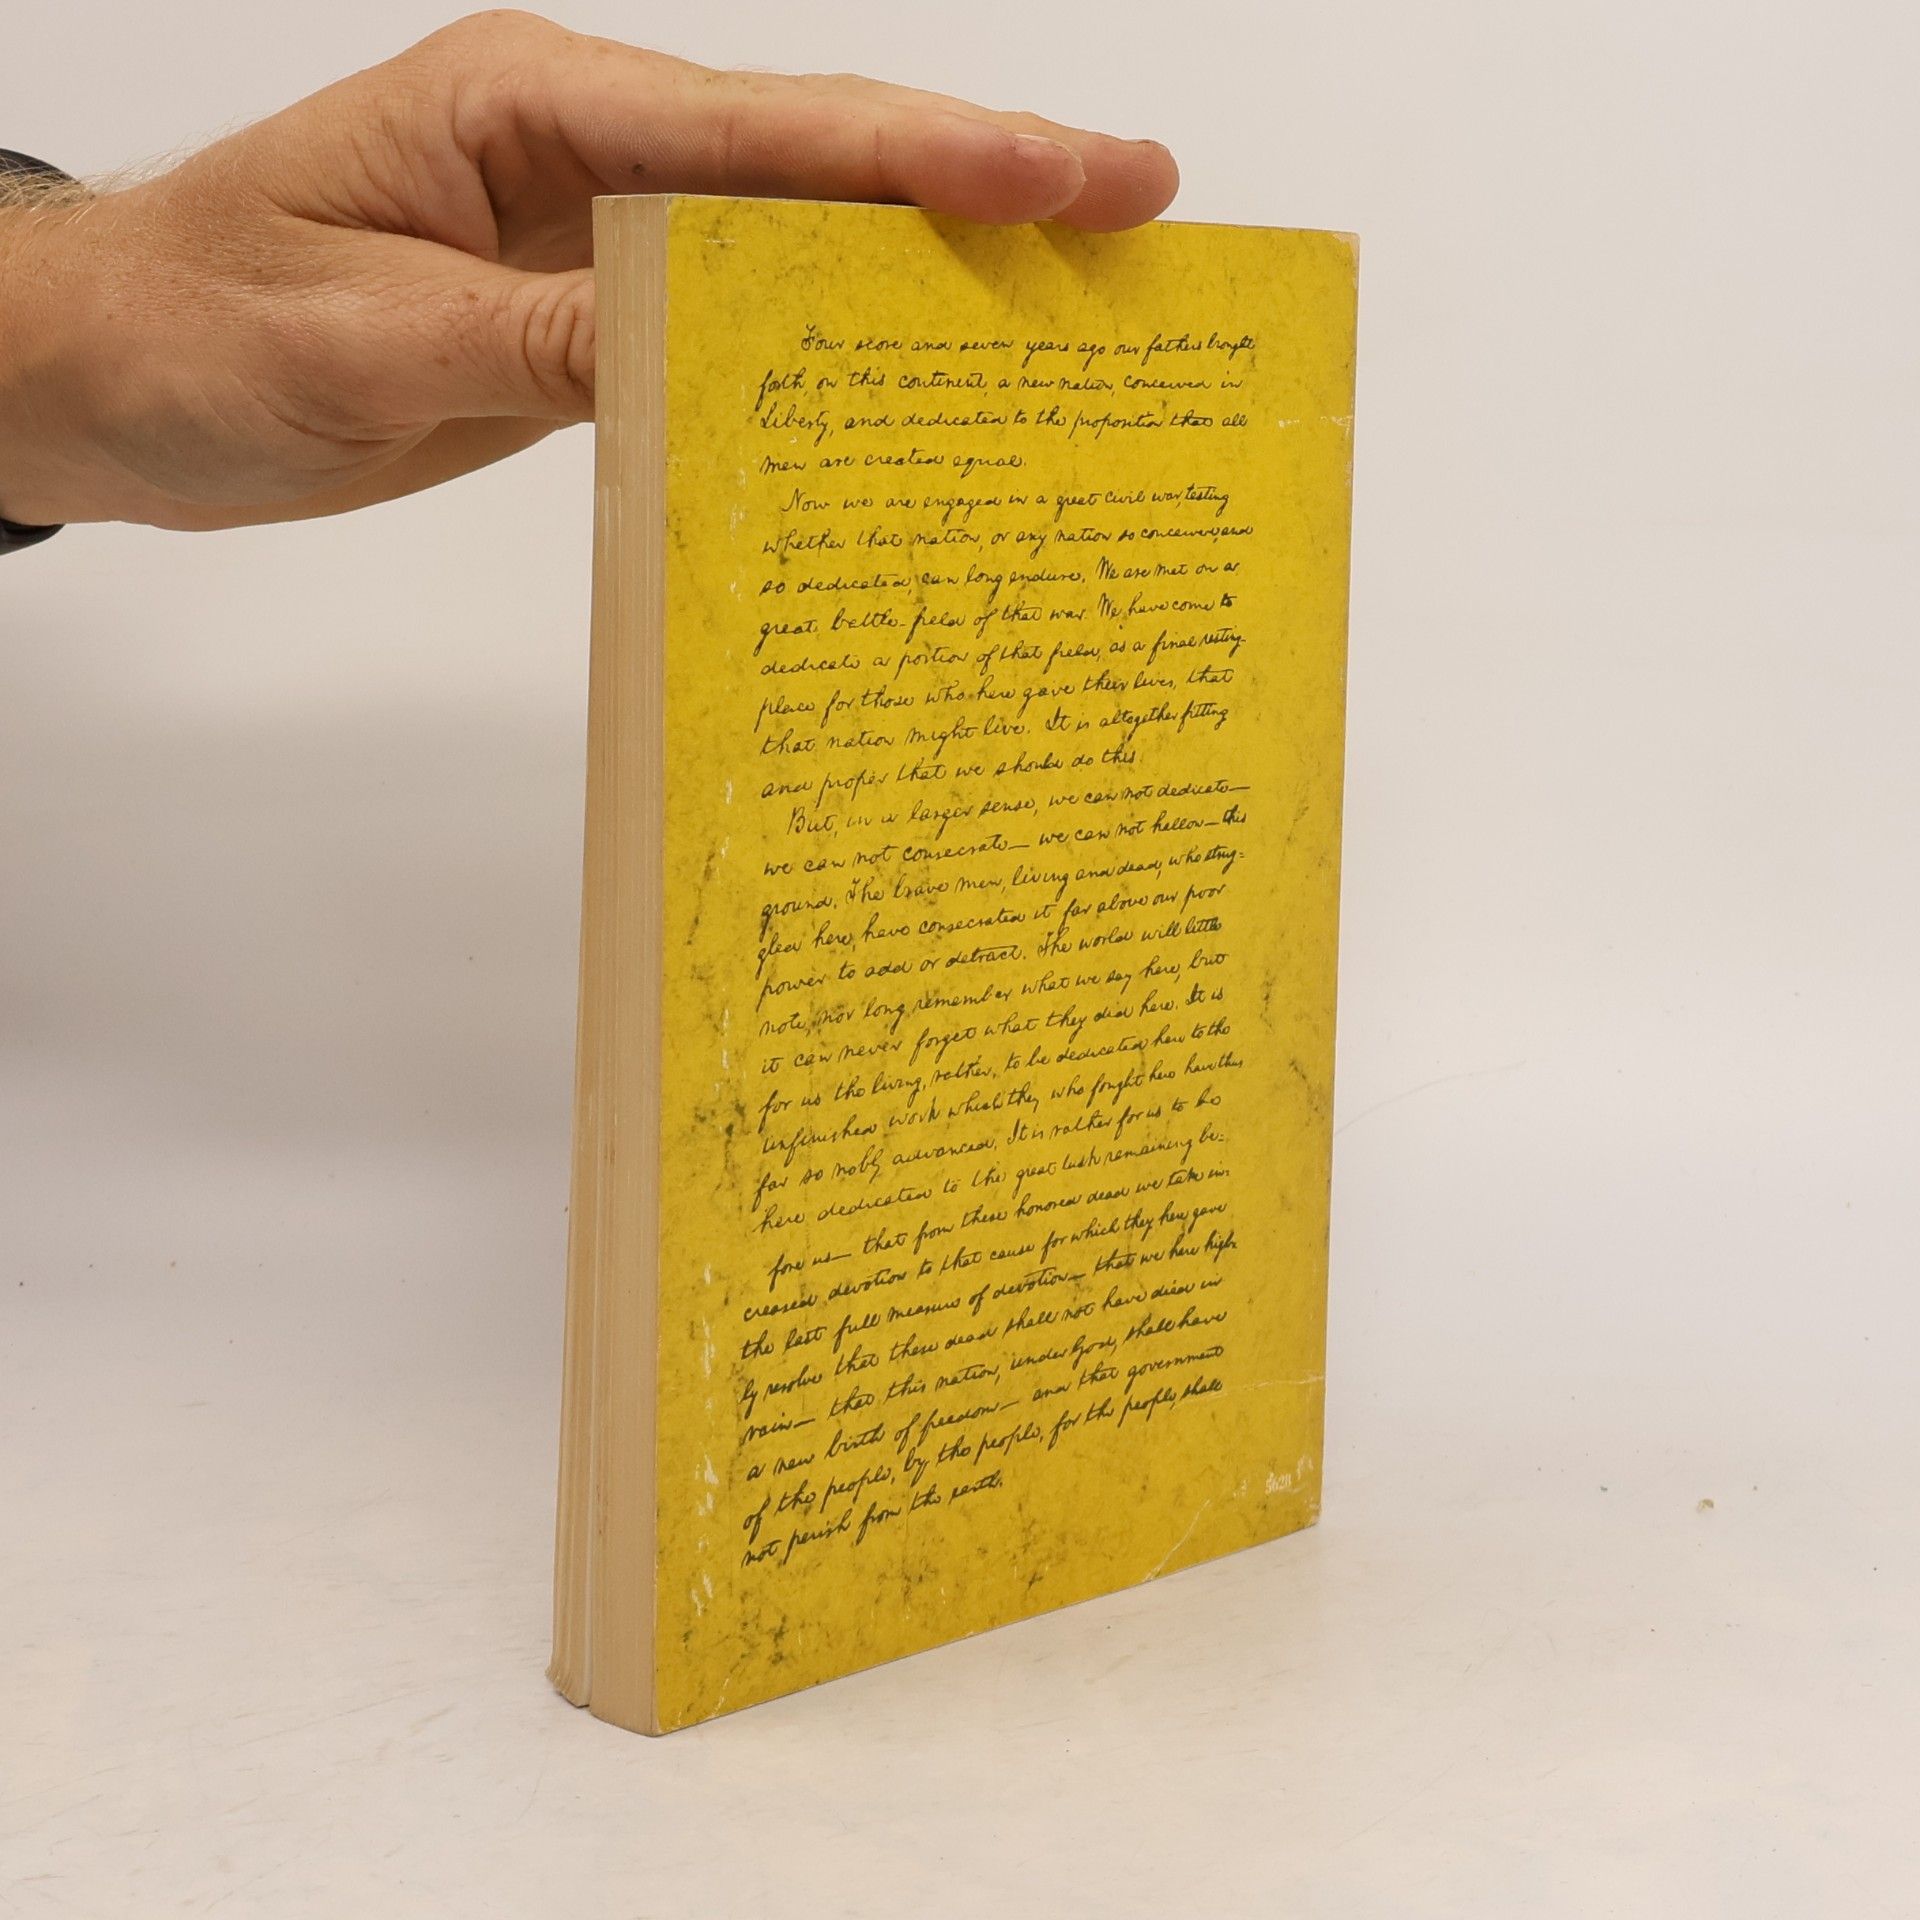 Four score and seven years ago our fathers brought
forth, on this continent, a new nation, conceived in
Liberty, and dedicated to the proposition that all
men are created equal.
Now we are engaged in a great civil war, testing
whether that nation, or any nation so conceived, and
so dedicated, can long endure. We are met on a
great battle-field of that war. We have come to
dedicate a portion of that field, as a final resting-
place for those who here gave their lives, that
that nation might live. It is altogether fitting
and proper that we should do this.
But, in a larger sense, we can not dedicate—
we can not consecrate— we can not hallow— this
ground. The brave men, living and dead, who strug=
gled here, have consecrated it far above our poor
power to add or detract. The world will little
note, nor long remember what we say here, but
it can never forget what they did here. It is
for us the living, rather, to be dedicated here to the
unfinished work which they who fought here have thus
far so nobly advanced. It is rather for us to be
here dedicated to the great task remaining be=
fore us— that from these honored dead we take in=
creased devotion to that cause for which they here gave
the last full measure of devotion— that we here high=
ly resolve that these dead shall not have died in
vain— that this nation, under God, shall have
a new birth of freedom— and that government
of the people, by the people, for the people, shall
not perish from the earth.
5628